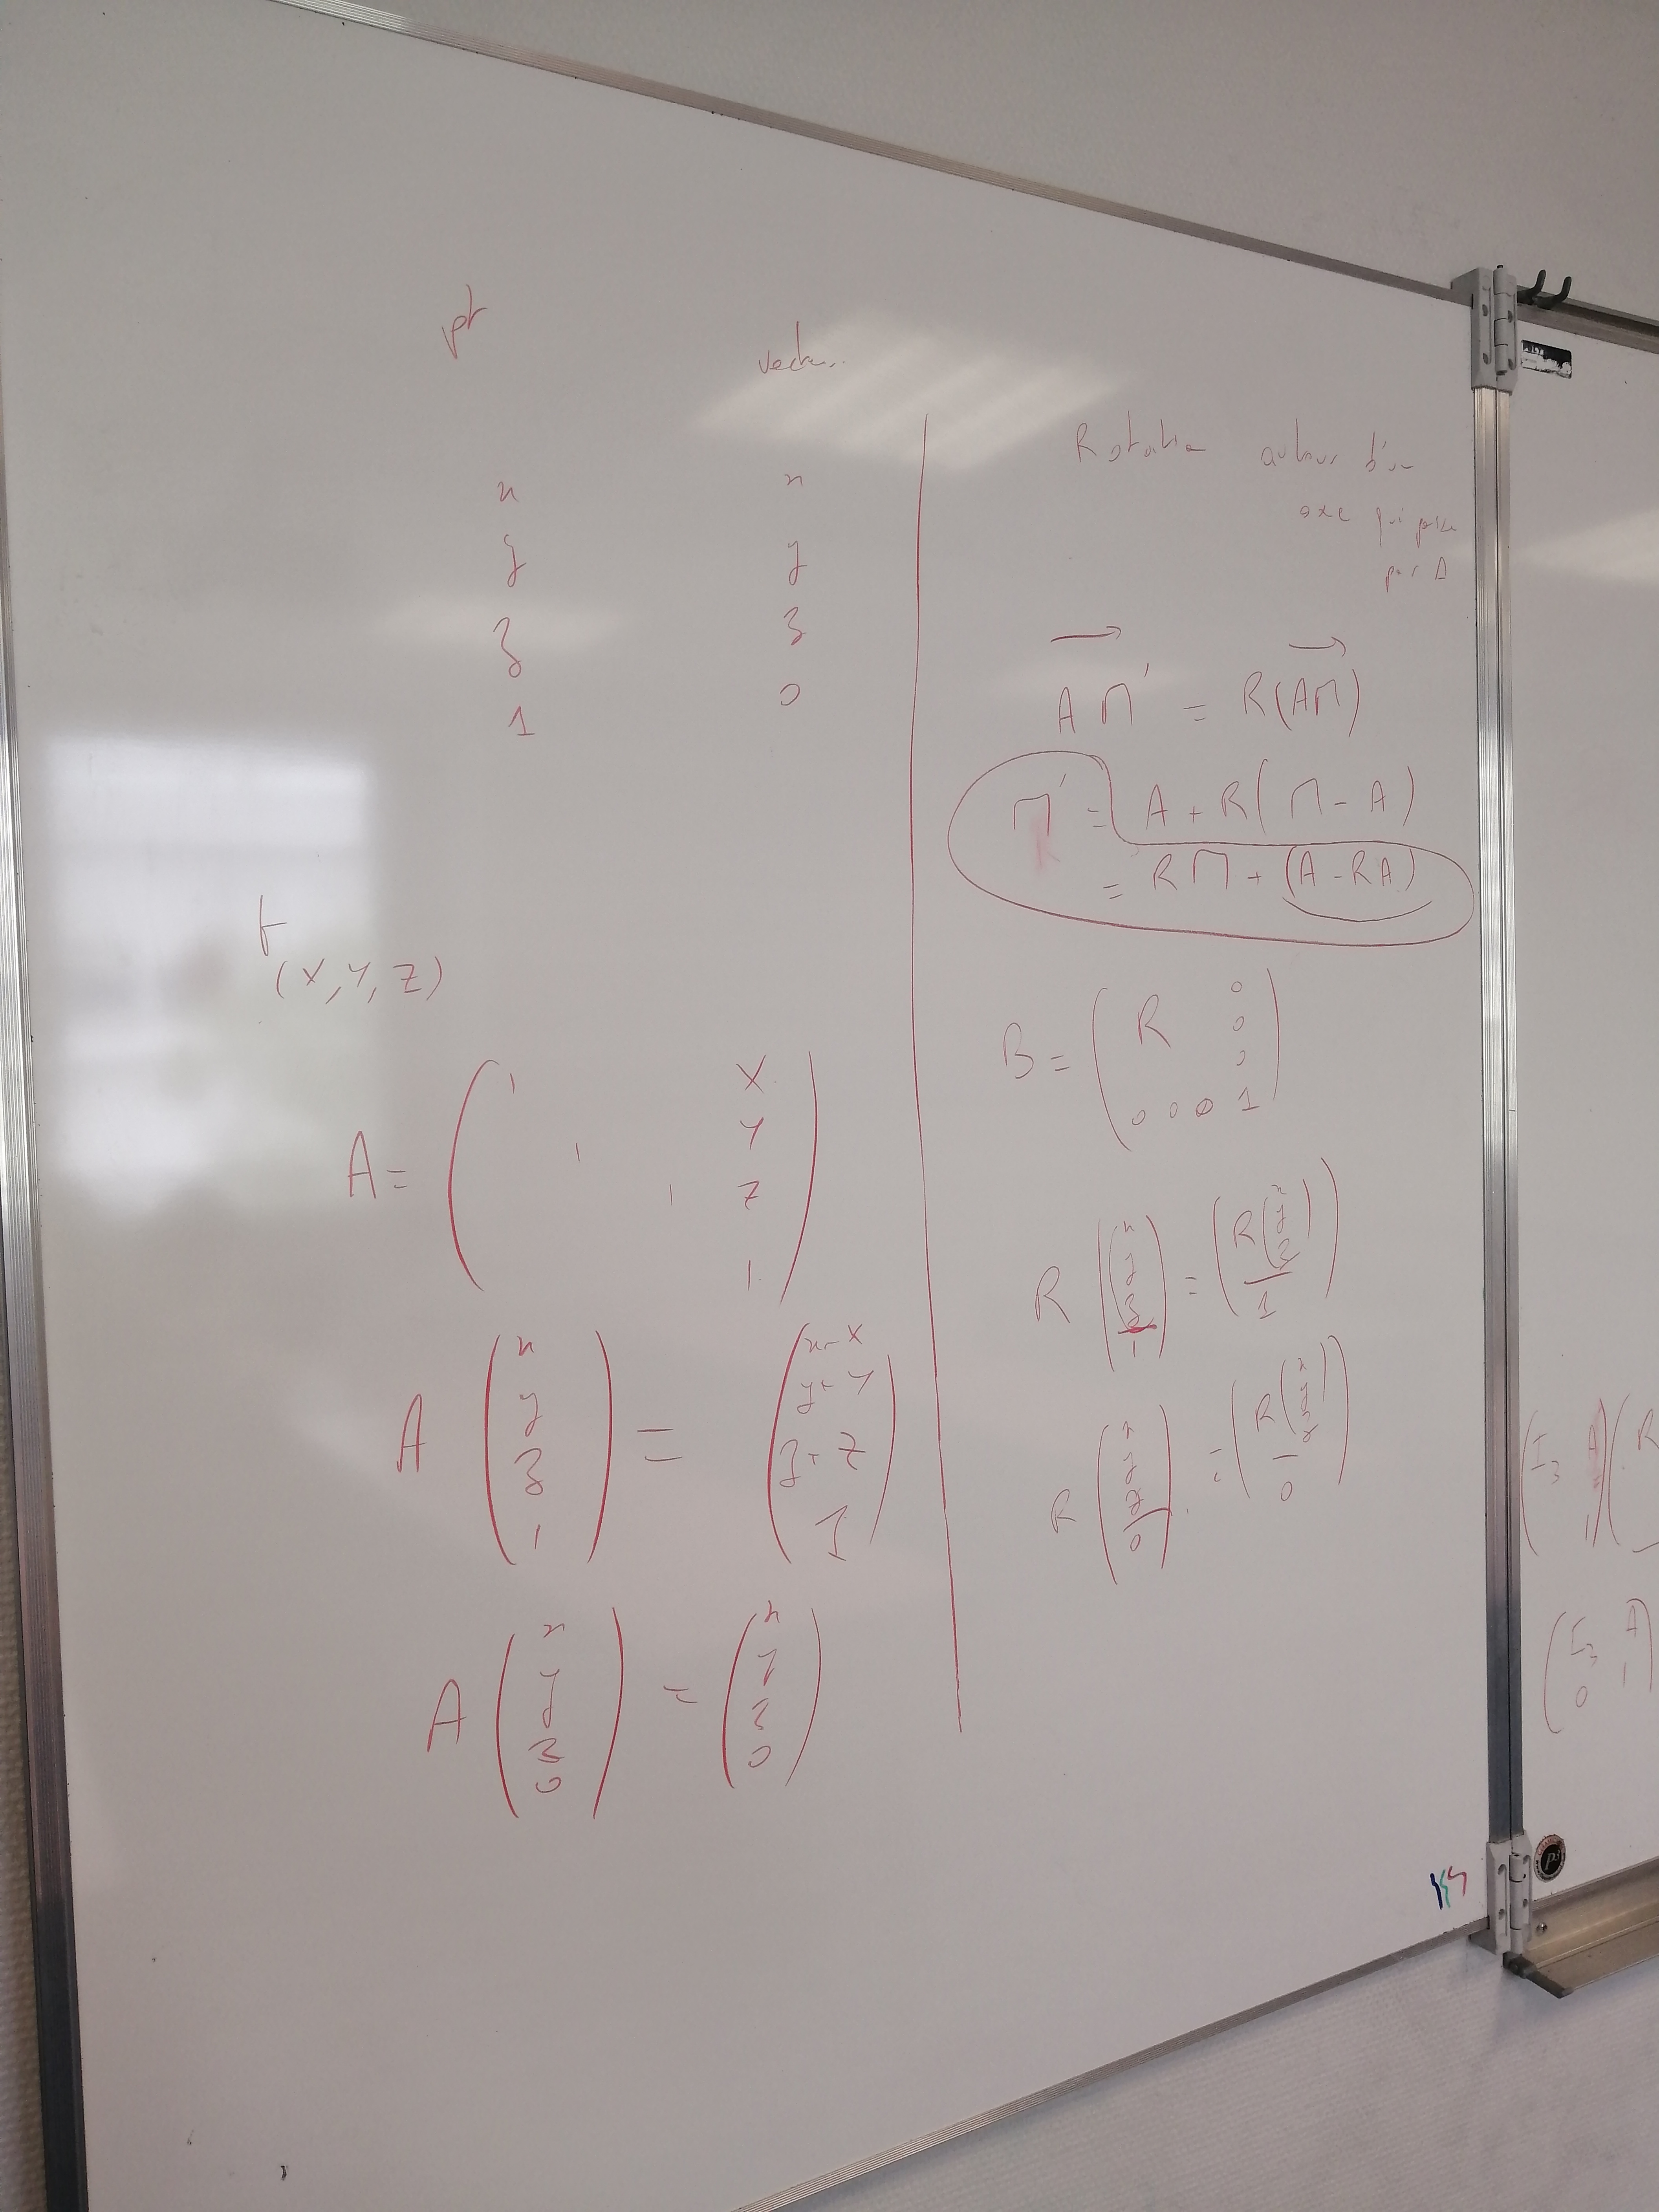 pt
vecteur
x
y
z
1
x
y
z
0
t
(X, Y, Z)
A = ( 1 X
Y
1
1 Z
1 )
A ( x y z 1 ) = ( x+X y+Y z+Z 1 )
A ( x y z 0 ) = ( x y z 0 )
Rotation autour d'un
axe qui passe
par A
AM' = R(AM)
M' = A + R( M - A )
= RM + (A - RA)
B = ( R 0
0
0
0 0 0 1 )
R ( x y z 1 ) = ( R ( x y z ) 1 )
R ( x y z 0 ) = ( R ( x y z ) 0 )
( I3 A
1 ) ( R
( I3 A
0 1 )